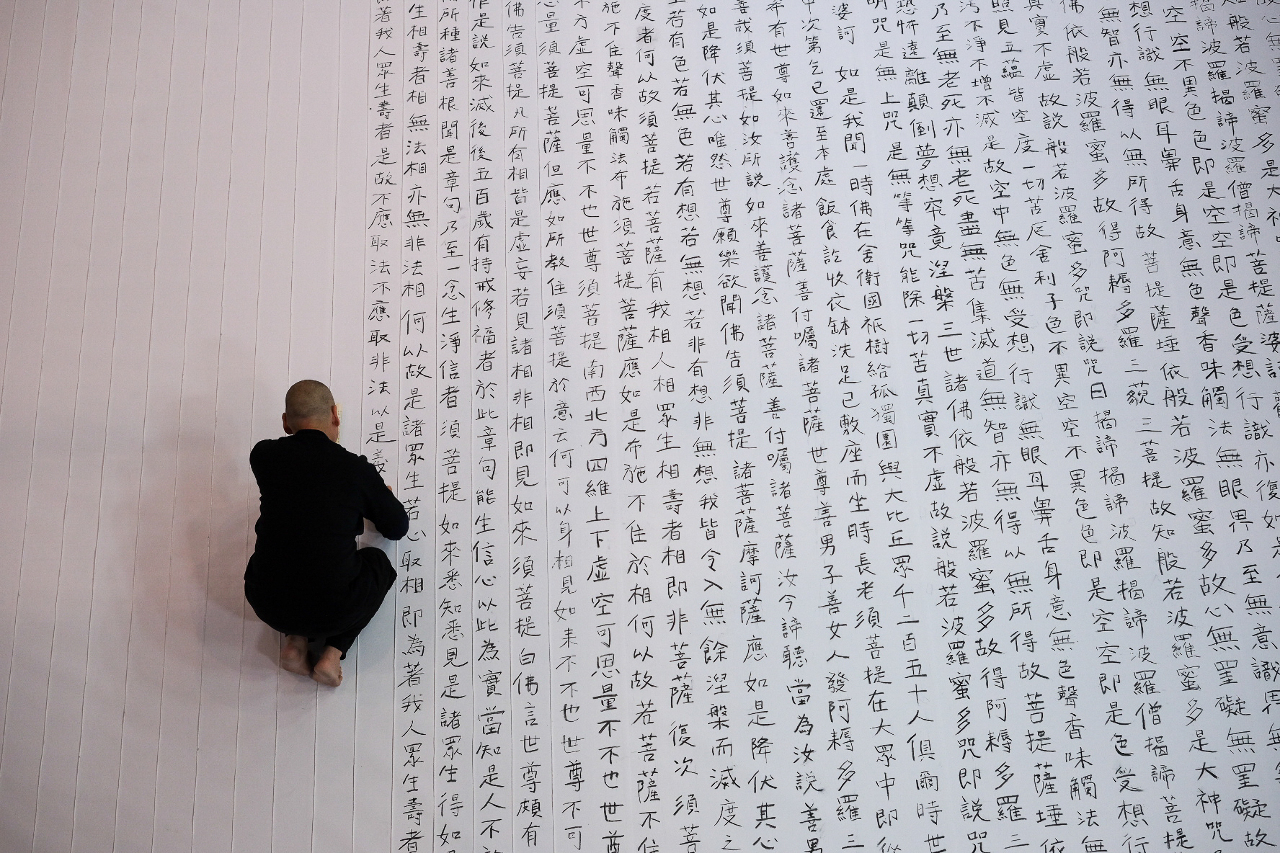 知般若波羅蜜多是大神
揭諦波羅揭諦波羅僧揭諦菩提薩婆
空空不異色色即是空空即是色受想行識亦復如是
想行識無眼耳鼻舌身意無色聲香味觸法無眼界乃至無意識界無
無智亦無得以無所得故 菩提薩埵依般若波羅蜜多故心無罣礙無罣礙故
佛依般若波羅蜜多故得阿耨多羅三藐三菩提故知般若波羅蜜多是大神咒
真實不虛故說般若波羅蜜多咒即說咒曰揭諦揭諦波羅揭諦波羅僧揭諦菩提
見五蘊皆空度一切苦厄舍利子色不異空空不異色色即是空空即是色受想行
污不淨不增不減是故空中無色無受想行識無眼耳鼻舌身意無色聲香味觸法無
乃至無老死亦無老死盡無苦集滅道無智亦無得以無所得故菩提薩埵依
恐怖遠離顛倒夢想究竟涅槃三世諸佛依般若波羅蜜多故得阿耨多羅三
明咒是無上咒是無等等咒能除一切苦真實不虛故說般若波羅蜜多咒即說咒
婆訶 如是我聞一時佛在舍衛國祇樹給孤獨園與大比丘眾千二百五十人俱爾時世
中次第乞已還至本處飯食訖收衣缽洗足已敷座而坐時長老須菩提在大眾中即從
希有世尊如來善護念諸菩薩善付囑諸菩薩世尊善男子善女人發阿耨多羅三
善哉須菩提如汝所說如來善護念諸菩薩善付囑諸菩薩汝今諦聽當為汝說善男
如是降伏其心唯然世尊願樂欲聞佛告須菩提諸菩薩摩訶薩應如是降伏其心
生若有色若無色若有想若無想若非有想非無想我皆令入無餘涅槃而滅度之
度者何以故須菩提若菩薩有我相人相眾生相壽者相即非菩薩復次須菩
施不住聲香味觸法布施須菩提菩薩應如是布施不住於相何以故若菩薩不住
東方虛空可思量不不也世尊須菩提南西北方四維上下虛空可思量不不也世尊
思量須菩提菩薩但應如所教住須菩提於意云何可以身相見如来不不也世尊不可
佛告須菩提凡所有相皆是虛妄若見諸相非相即見如來須菩提白佛言世尊頗有
作是說如來滅後後五百歲有持戒修福者於此章句能生信心以此為實當知是人不於
所種諸善根聞是章句乃至一念生淨信者須菩提如來悉知悉見是諸眾生得如
生相壽者相無法相亦無非法相何以故是諸眾生若心取相即為著我人眾生壽者
著我人眾生壽者是故不應取法不應取非法以是義